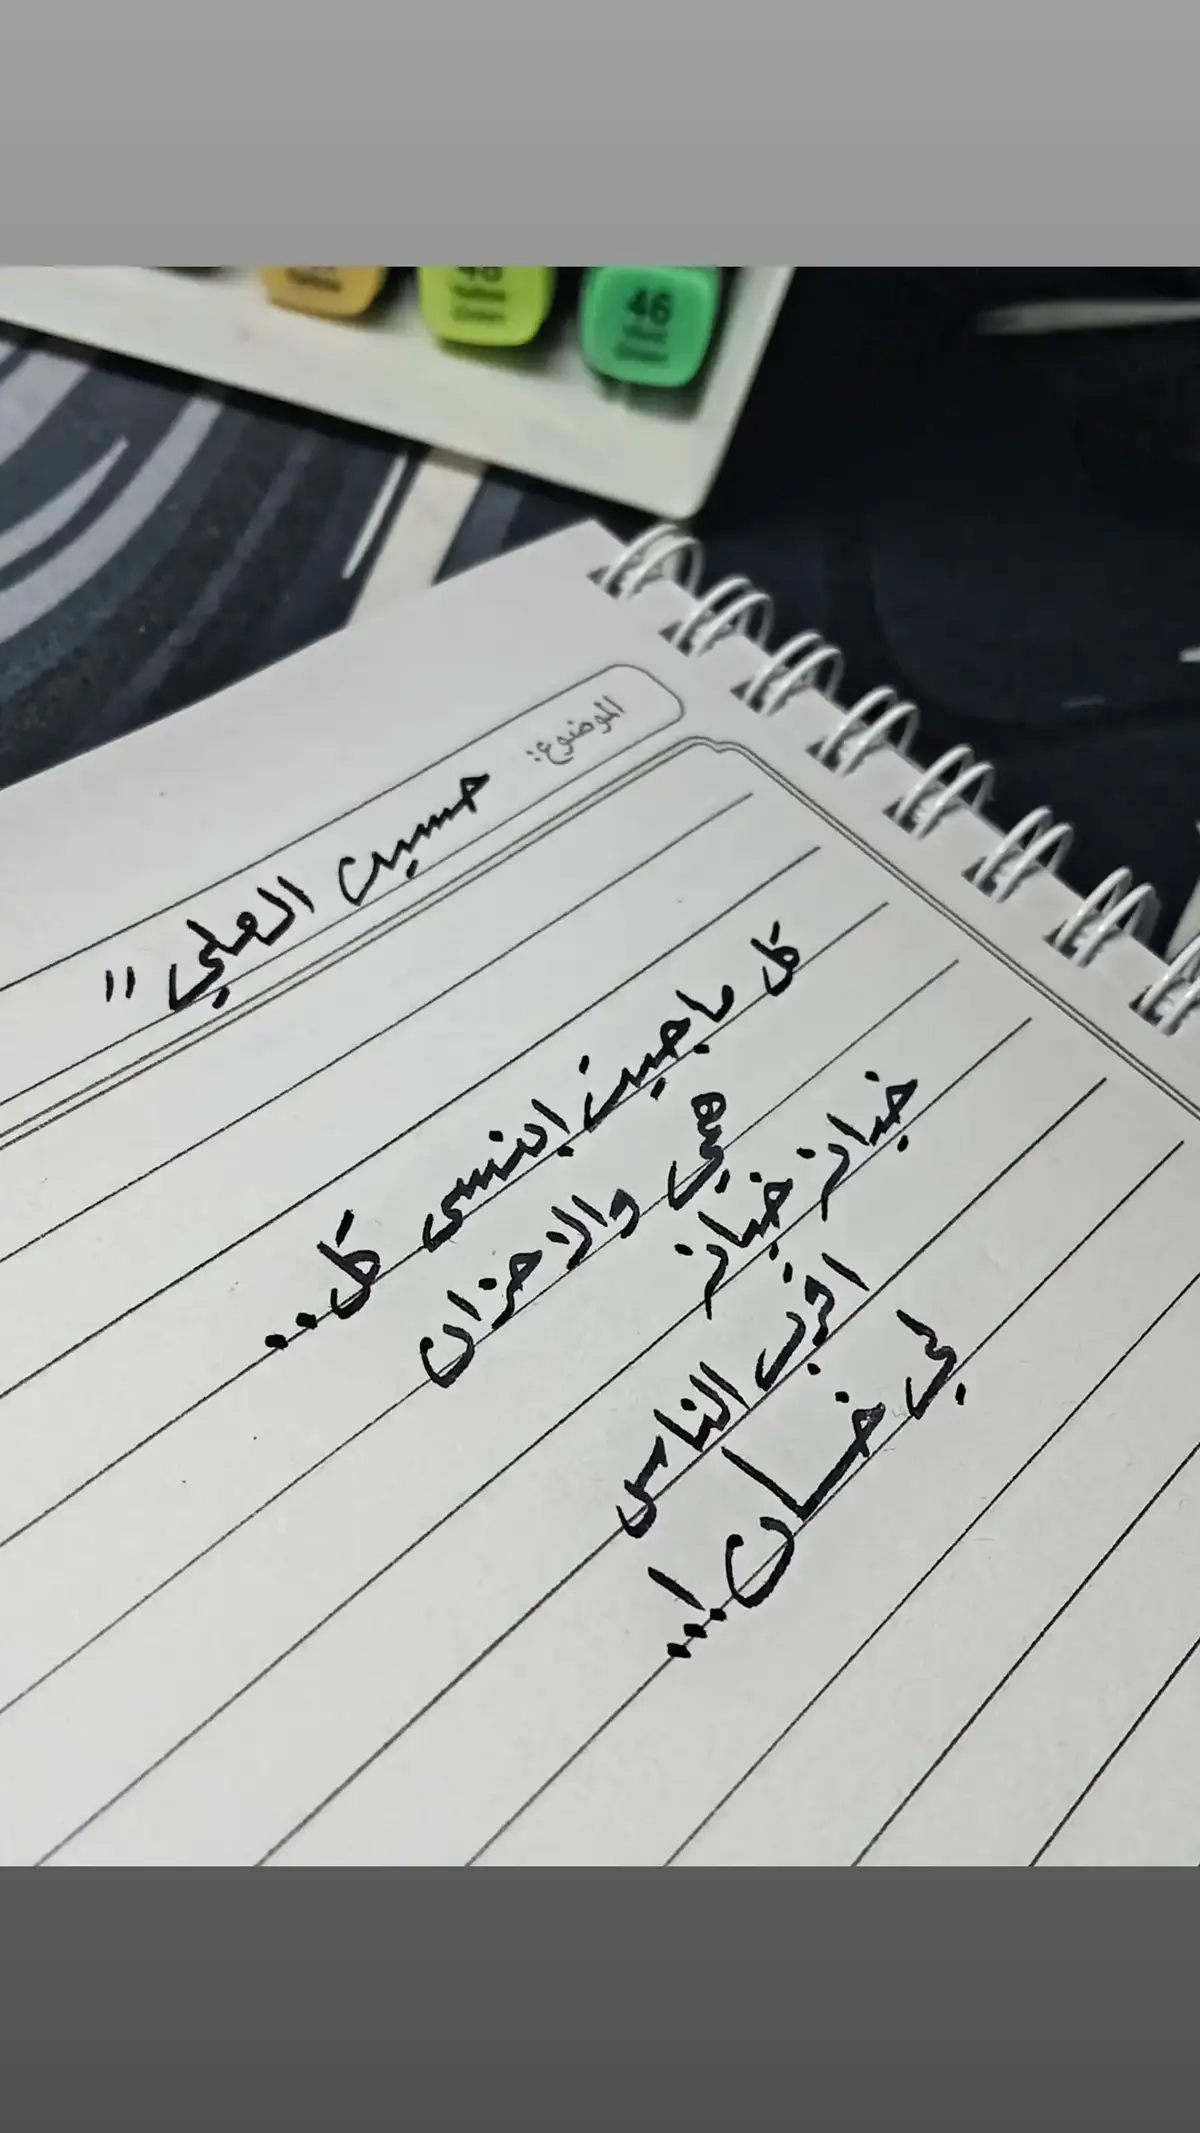 46
الموضوع:
حسين العلي "
كل ماجيت ابنسى كل..
همي والاحزان
خبانز خبانز
اقرب الناس
لي خان!...